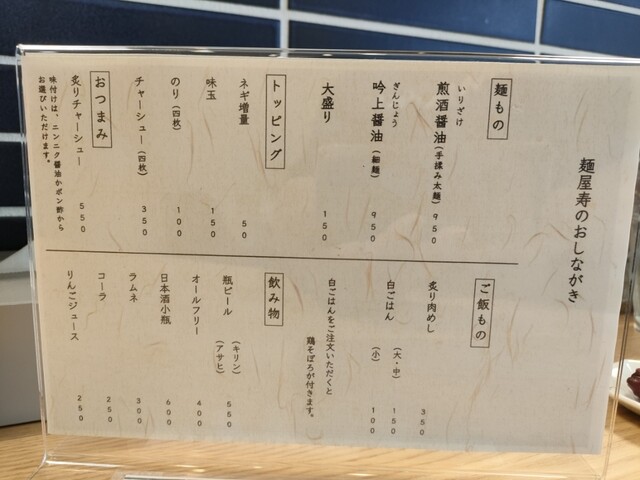 麺屋寿のおしながき
麺もの
いりざけ
煎酒醤油(手揉み太麺) 950
ぎんじょう
吟上醤油(細麺) 950
大盛り 150
トッピング
ネギ増量 50
味玉 150
のり(四枚) 100
チャーシュー(四枚) 350
おつまみ
炙りチャーシュー 550
味付けは、ニンニク醤油かポン酢から
お選びいただけます。
ご飯もの
炙り肉めし 350
白ごはん (大・中) 150
(小) 100
白ごはんをご注文いただくと
鶏そぼろが付きます。
飲み物
瓶ビール (キリン) 550
(アサヒ)
オールフリー 400
日本酒小瓶 600
ラムネ 300
コーラ 250
りんごジュース 250